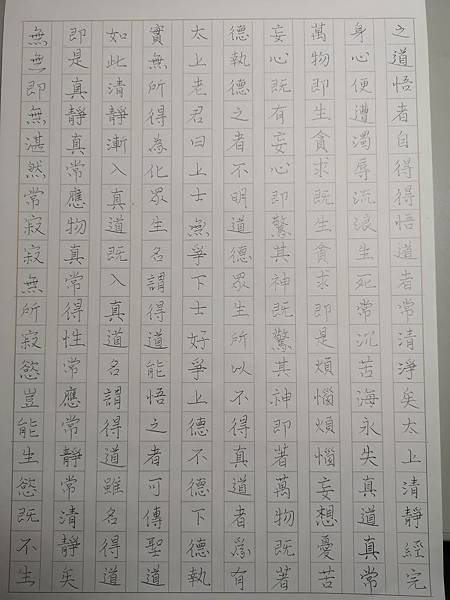 無無即無湛然常寂寂無所寂慾豈能生慾既不生
即是真靜真常應物真常得性常應常靜常清靜矣
如此清靜漸入真道既入真道名謂得道雖名得道
實無所得為化眾生名謂得道能悟之者可傳聖道
太上老君曰上士無爭下士好爭上德不德下德執
德執德之者不明道德眾生所以不得真道者為有
妄心既有妄心即驚其神既驚其神即著萬物既著
萬物即生貪求既生貪求即是煩惱煩惱妄想憂苦
身心便遭濁辱流浪生死常沉苦海永失真道真常
之道悟者自得得悟道者常清淨矣太上清靜經完